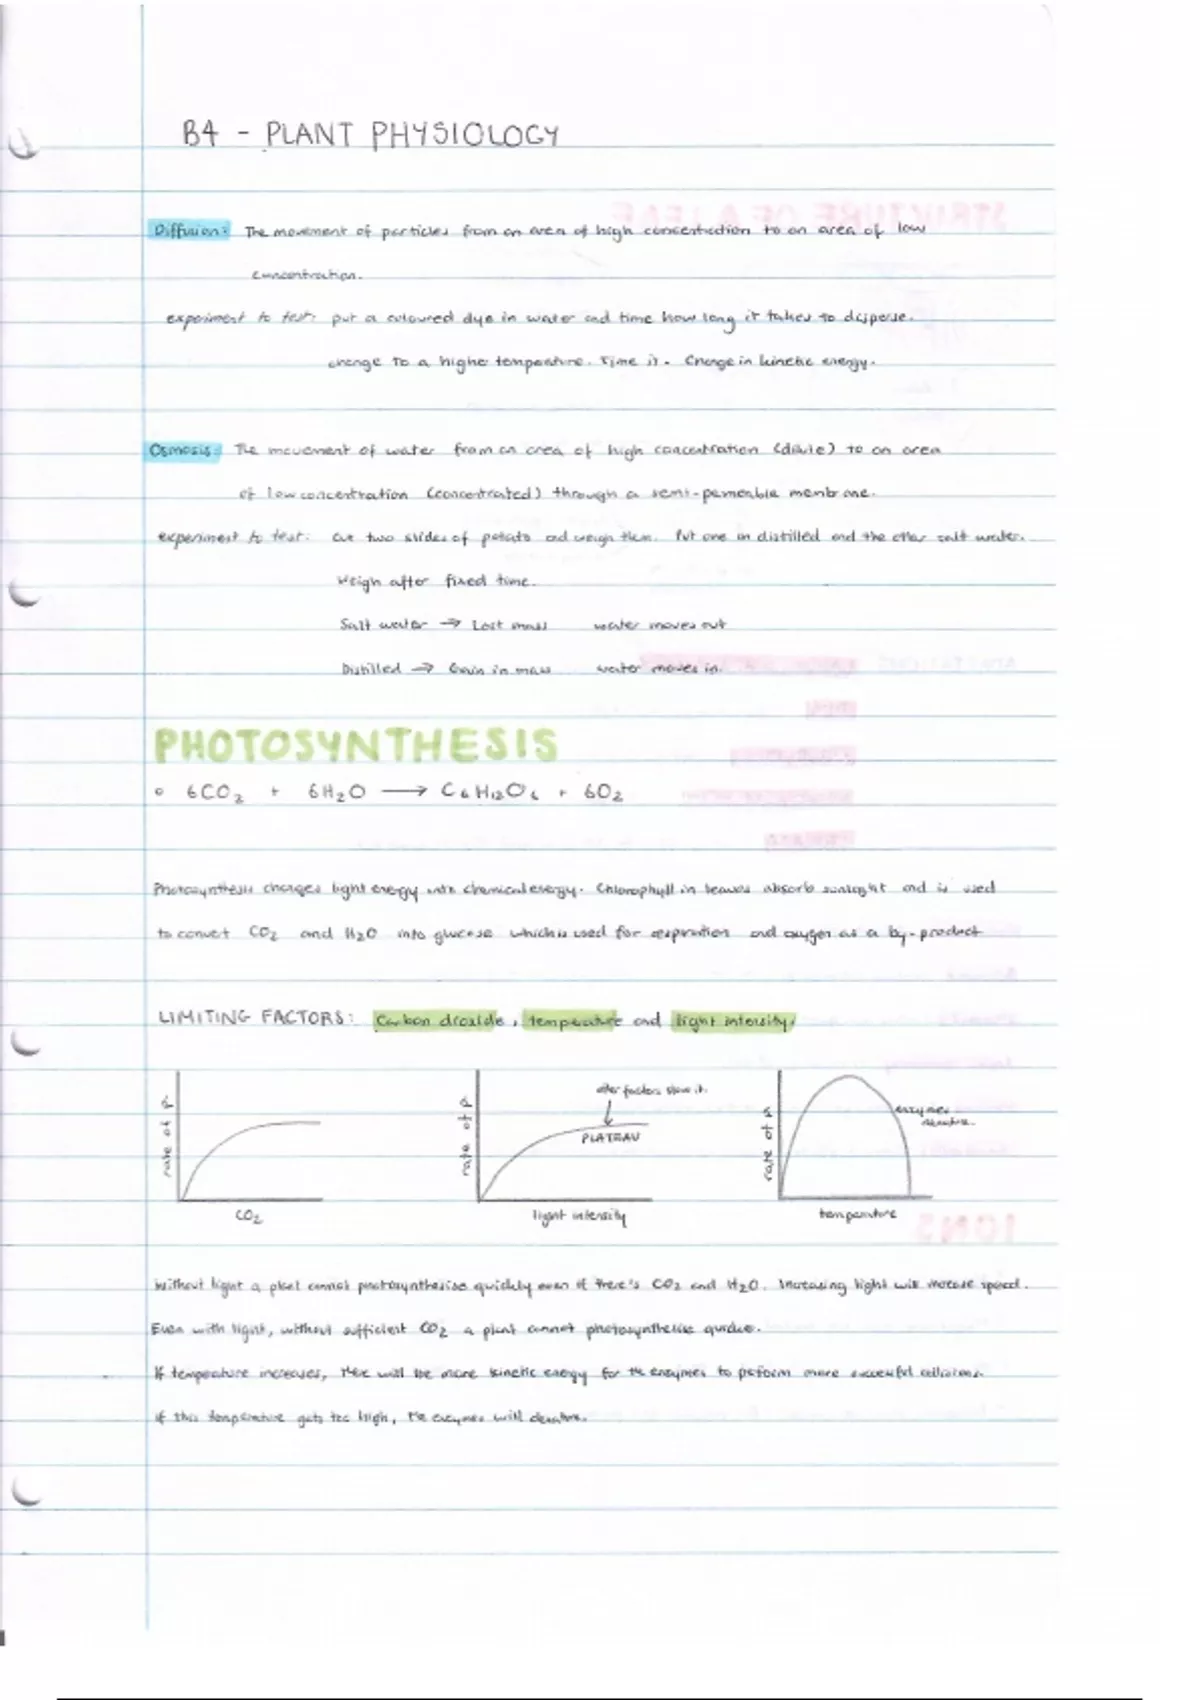 B4 - PLANT PHYSIOLOGY
Diffusion: The movement of particles from an area of high concentration to an area of low
concentration.
experiment to test: put a coloured dye in water and time how long it takes to disperse.
change to a higher temperature. Time it. Change in kinetic energy.
Osmosis: The movement of water from an area of high concentration (dilute) to an area
of low concentration (concentrated) through a semi-permeable membrane.
experiment to test: cut two slides of potato and weigh them. Put one in distilled and the other salt water.
Weigh after fixed time.
Salt water → Lost mass water moves out
Distilled → Gain in mass water moves in.
PHOTOSYNTHESIS
6CO2 + 6H2O → C6H12O6 + 6O2
Photosynthesis changes light energy into chemical energy. Chlorophyll in leaves absorb sunlight and is used
to convert CO2 and H2O into glucose which is used for respiration and oxygen as a by-product
LIMITING FACTORS: Carbon dioxide, temperature and light intensity.
rate of P
CO2
rate of P
other factors slow it.
PLATEAU
light intensity
rate of P
enzymes
denature.
temperature
Without light a plant cannot photosynthesise quickly even if there's CO2 and H2O. Increasing light will increase speed.
Even with light, without sufficient CO2 a plant cannot photosynthesise quicker.
If temperature increases, there will be more kinetic energy for the enzymes to perform more successful collisions.
If this temperature gets too high, the enzymes will denature.
STRUCTURE OF A LEAF
IONS